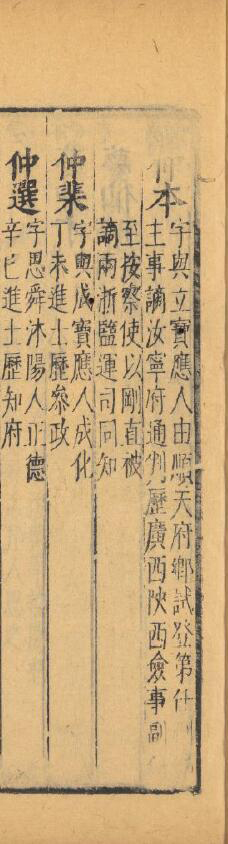 仲本
字與立寶應人由順天府鄉試登第仕
主事謫汝寧府通判歷廣西陜西僉事副
至按察使以剛直被
謫兩浙鹽運司同知
仲棐
字與成寶應人成化
丁未進士歷參政
仲選
字思舜沐陽人正德
辛巳進士歷知府